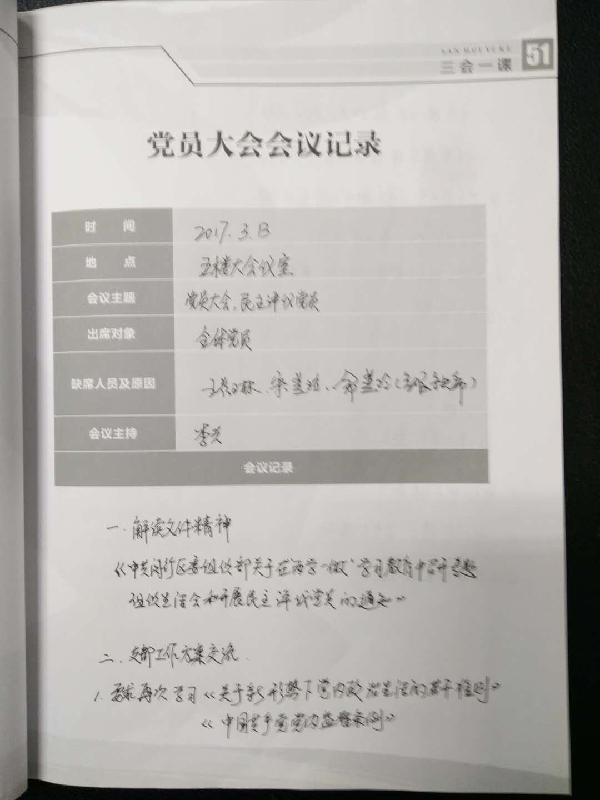 SAN HUI YI KE
三会一课 51
党员大会会议记录
时 间 2017.3.13
地 点 五楼大会议室
会议主题 党员大会、民主评议党员
出席对象 全体党员
缺席人员及原因
会议主持 李兴
会议记录
一、解读文件精神
《中共闵行区委组织部关于在"两学一做"学习教育中召开专题
组织生活会和开展民主评议党员的通知》
二、支部工作方案交流
1、要求再次学习《关于新形势下党内政治生活的若干准则》
《中国共产党党内监督条例》